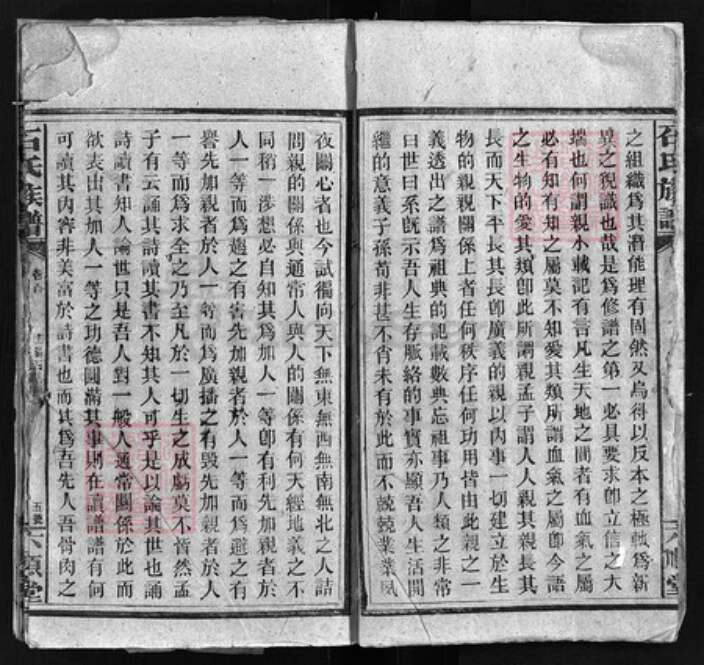 之組織爲其潛能理有固然又烏得以反本之極軌爲新
異之貌識也哉是爲修譜之第一必具要求卽立信之大
端也何謂親小戴記有言凡生天地之間者有血氣之屬
必有知有知之屬莫不知愛其類所謂血氣之屬卽今語
之生物的愛其類卽此所謂親孟子謂人人親其親長其
長而天下平長其長卽廣義的親以內事一切建立於生
物的親親關係上者任何秩序任何功用皆由此親之一
義透出之譜爲祖典的記載數典忘祖事乃人類之非常
曰世曰系旣示吾人生存脈絡的事實亦顯吾人生活開
繼的意義子孫苟非甚不肖未有於此而不兢兢業業夙
石氏族譜
卷首
五號
六順堂
夜關心者也今試徧向天下無東無西無南無北之人詰
問親的關係與通常人與人的關係有何天經地義之不
同稍一涉想必自知其爲加人一等卽有利先加親者於
人一等而爲趨之有害先加親者於人一等而爲避之有
譽先加親者於人一等而爲廣播之有毀先加親者於人
一等而爲求全之乃至凡於一切生之成虧莫不皆然孟
子有云誦其詩讀其書不知其人可乎是以論其世也誦
詩讀書知人論世只是吾人對一般人通常關係於此而
欲表出其加人一等之功德圓滿其事則在讀譜譜有何
可讀其內容非美富於詩書也而其爲吾先人吾骨肉之
石氏族譜
六順堂